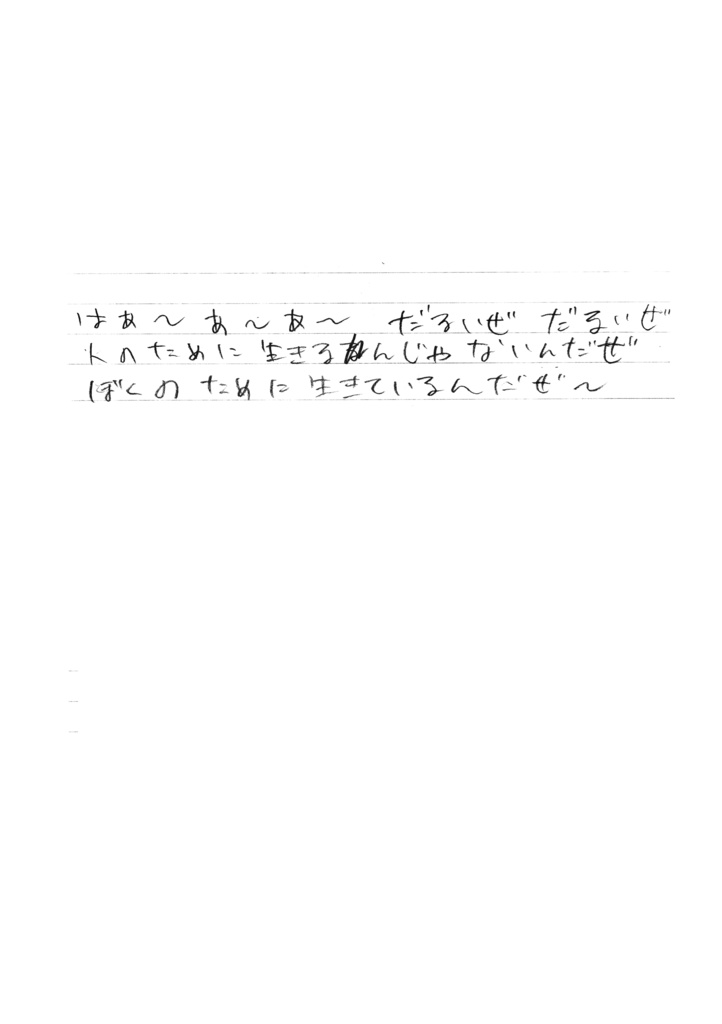 はぁ～あ～あ～ だるいぜ だるいぜ
人のために生きるんじゃないんだぜ
ぼくのために生きているんだぜ～